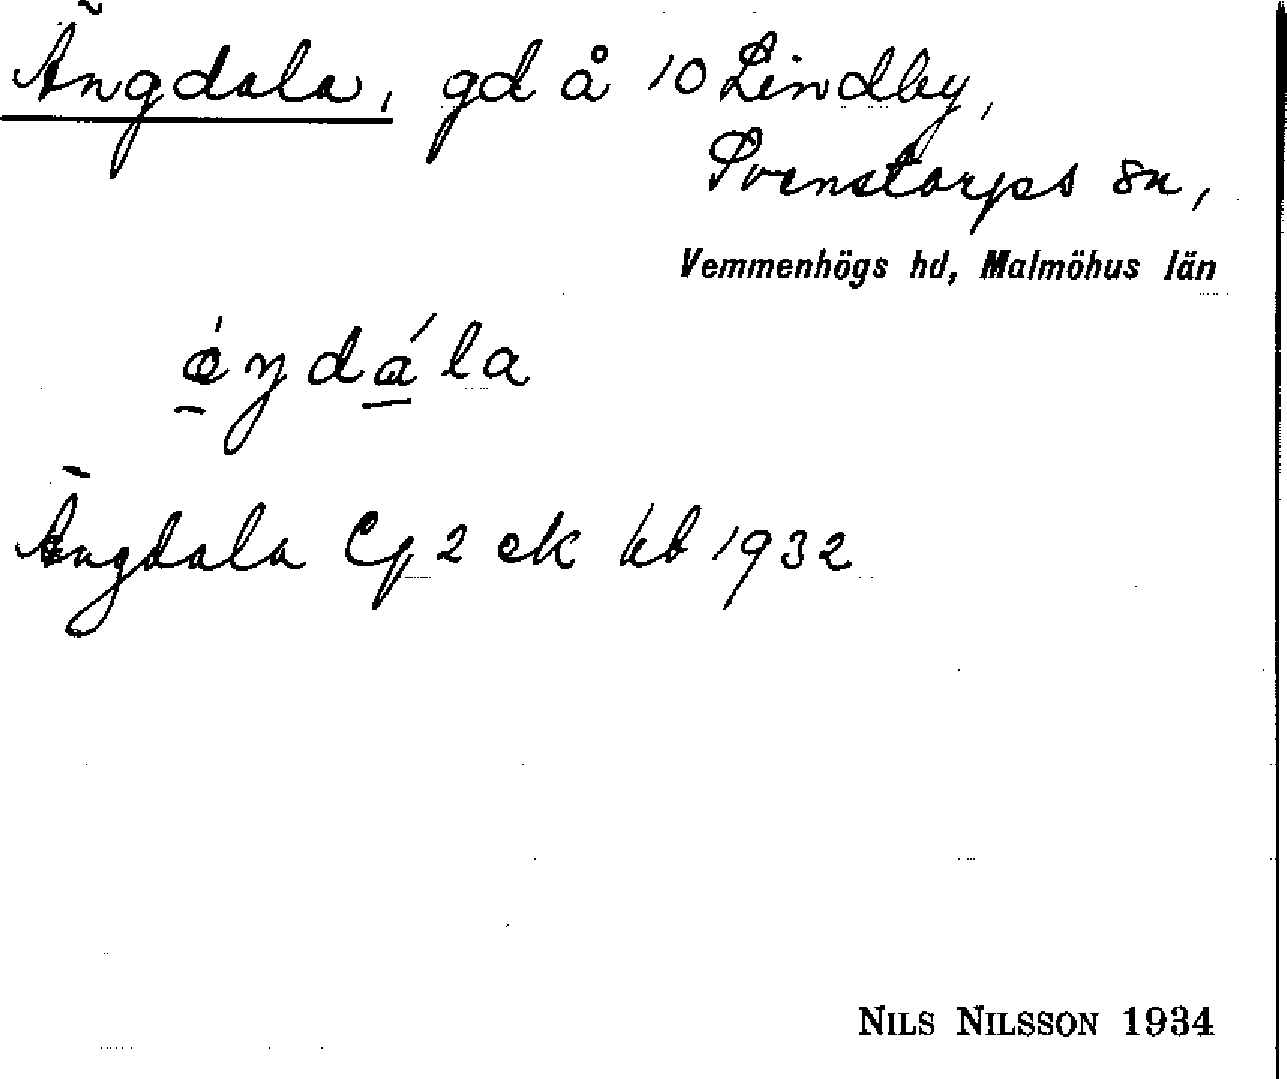 Ängdala, gd å 10 Lindby,
Svenstorps sn,
Vemmenhögs hd, Malmöhus län
Ängdala Cf 2 ek kb 1932
NILS NILSSON 1934